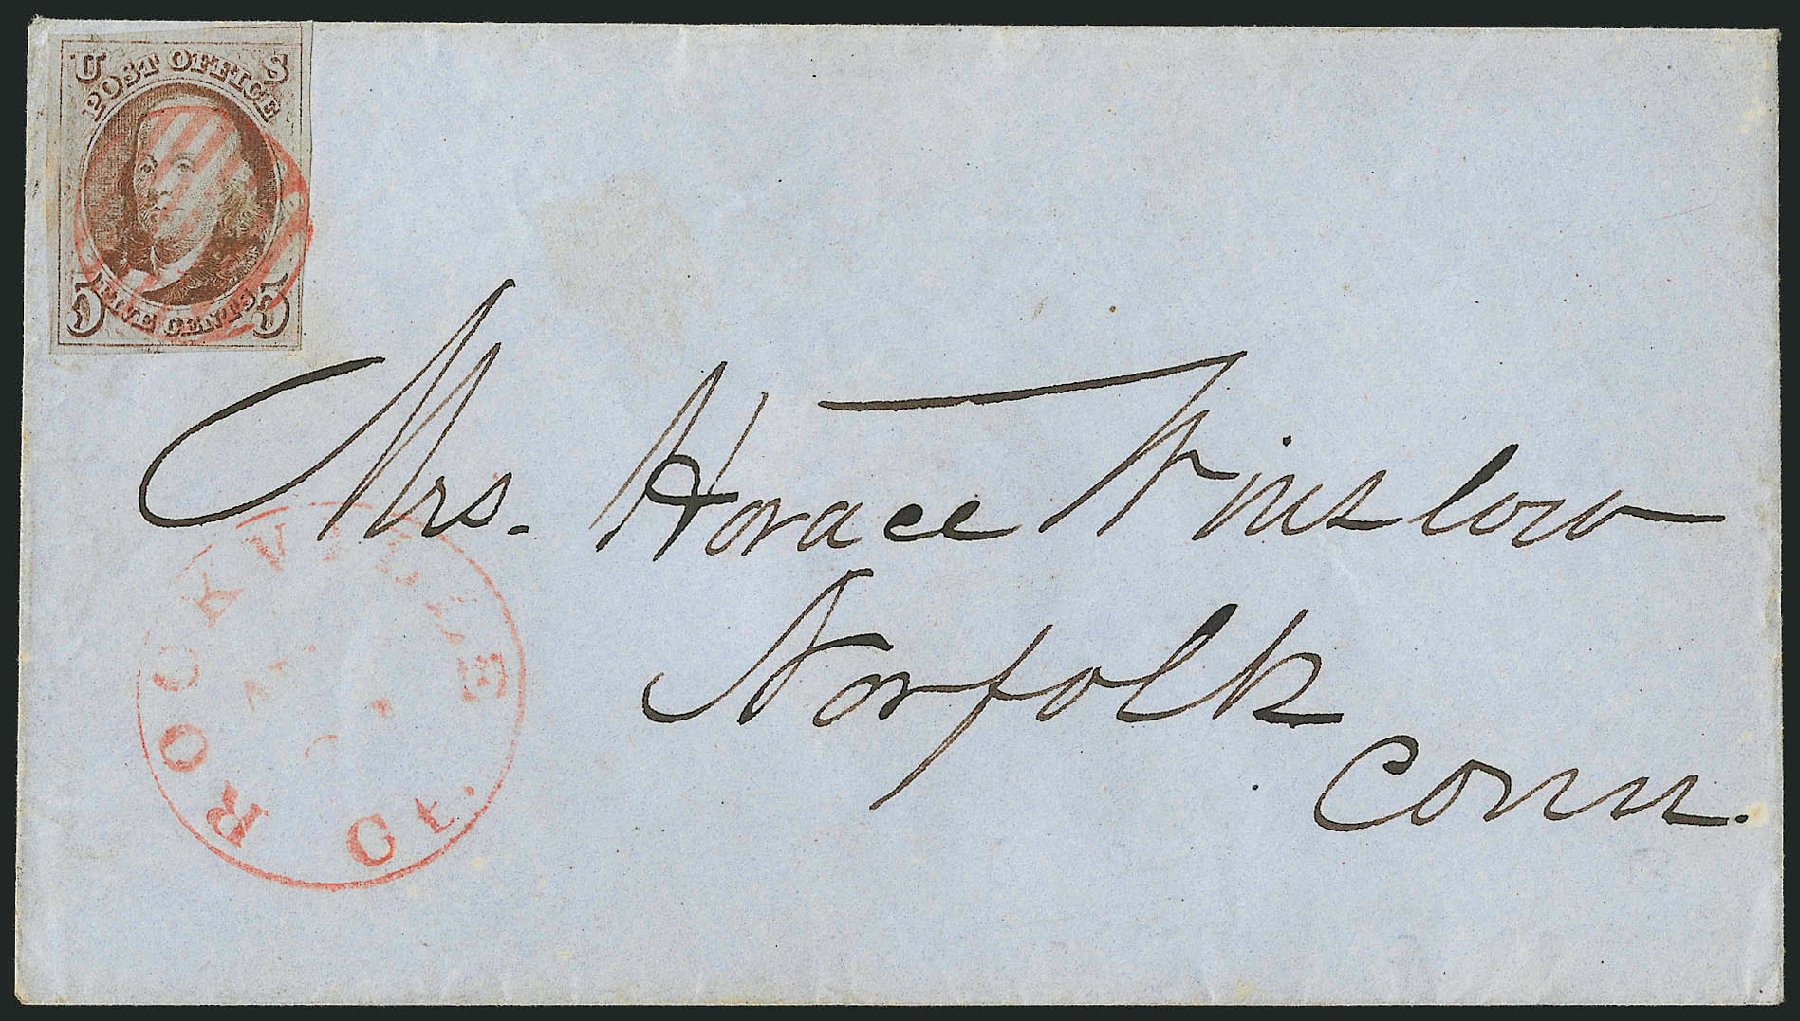 U S
POST OFFICE
5 FIVE CENTS 5
Mrs. Horace Winslow
Norfolk
Conn.
ROCKVILLE
Ct.